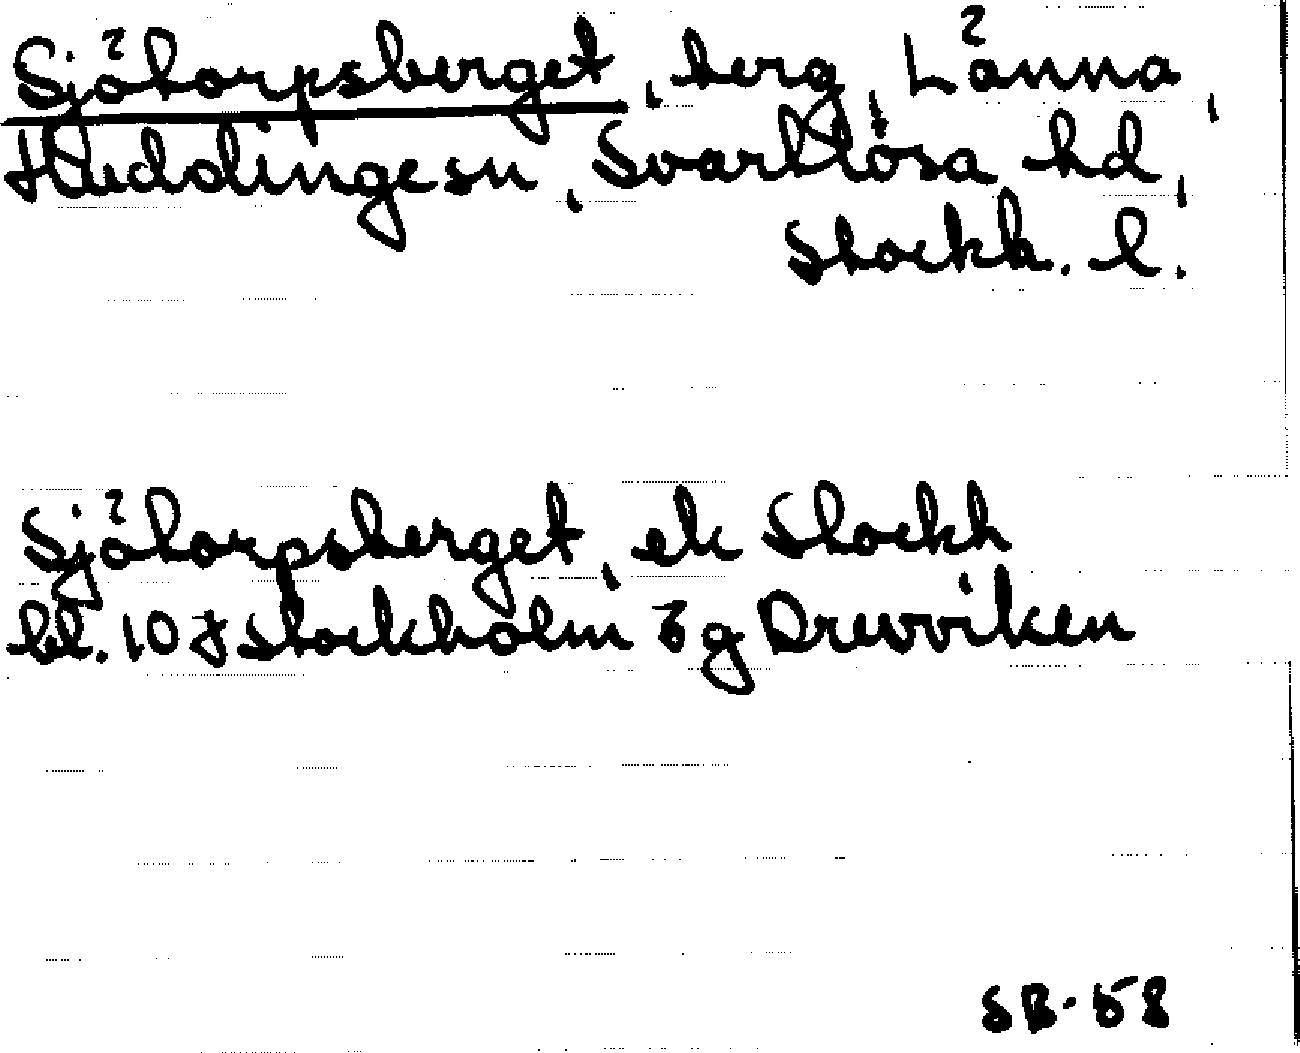 Sjötorpsberget, berg, Länna,
Huddinge sn, Svartlösa hd,
Stockh. l.
Sjötorpsberget, ek Stockh
bl. 10 J Stockholm 3 g Drevviken
SB-58